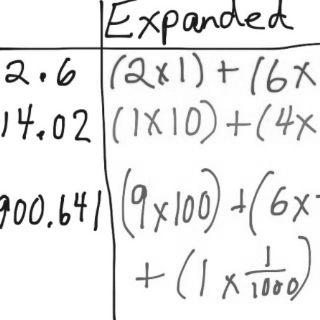 Expanded
2.6 (2x1) + (6x
14.02 (1x10) + (4x
900.641 (9x100) + (6x
+ (1 x 1/1000)